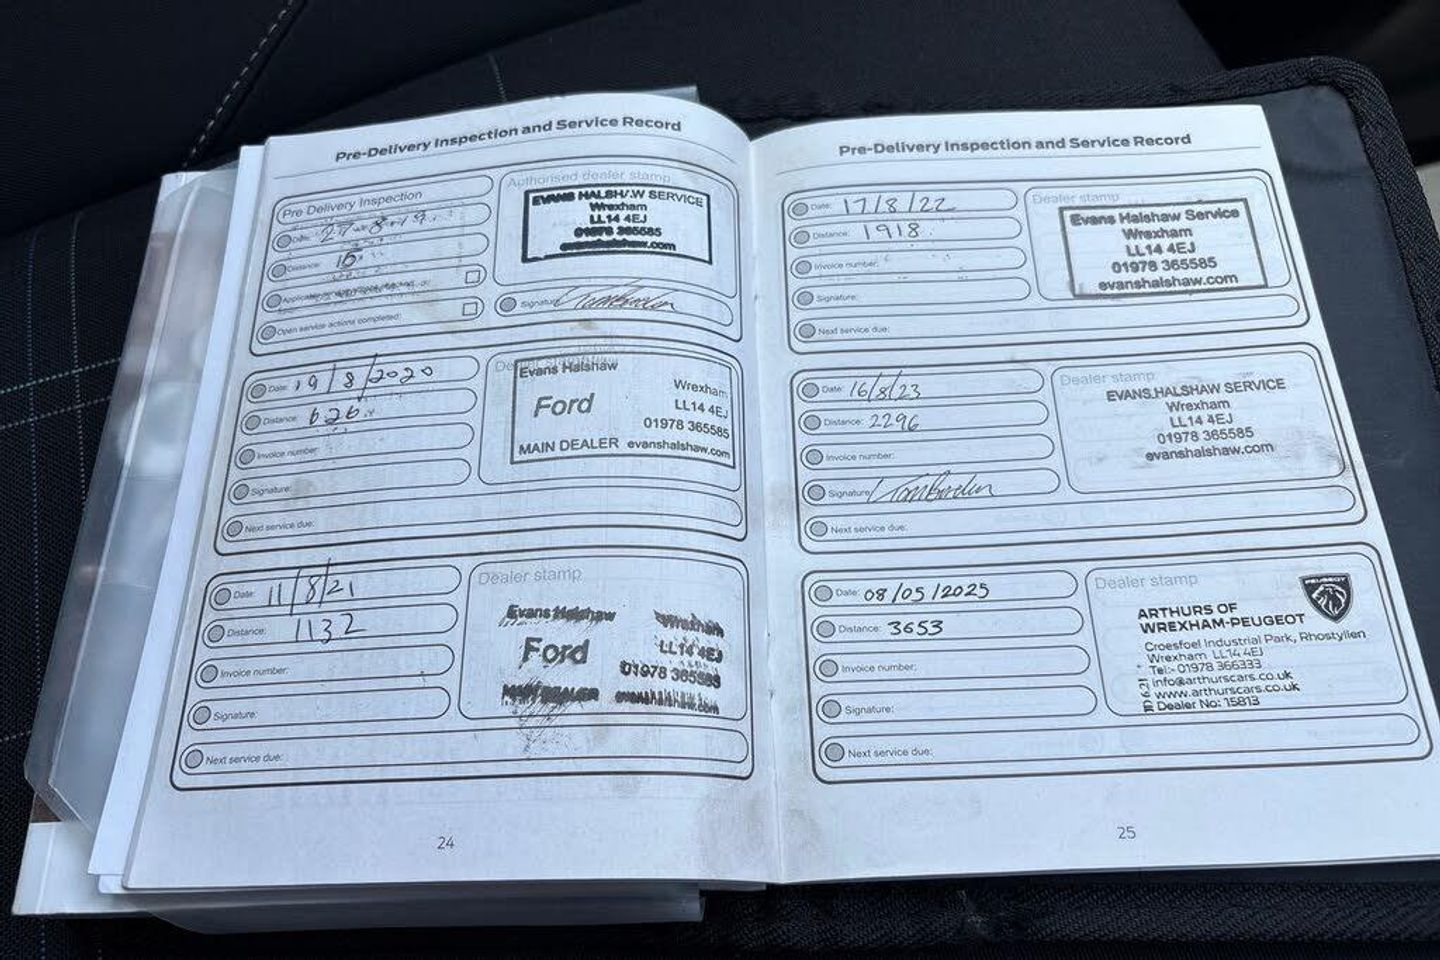 Pre-Delivery Inspection and Service Record
Pre Delivery Inspection
Date: 27.8.19
Distance: 15
Open service actions completed:
Authorised dealer stamp
EVANS HALSHAW SERVICE
Wrexham
LL14 4EJ
01978 365585
evanshalshaw.com
Signature
Date: 19/8/2020
Distance: 626
Invoice number:
Signature:
Next service due:
Dealer stamp
Evans Halshaw
Ford
Wrexham
LL14 4EJ
01978 365585
MAIN DEALER evanshalshaw.com
Date: 11/8/21
Distance: 1132
Invoice number:
Signature:
Next service due:
Dealer stamp
Evans Halshaw
Ford
Wrexham
LL14 4EJ
01978 365585
MAIN DEALER evanshalshaw.com
24
Pre-Delivery Inspection and Service Record
Date: 17/8/22
Distance: 1918
Invoice number:
Signature:
Next service due:
Dealer stamp
Evans Halshaw Service
Wrexham
LL14 4EJ
01978 365585
evanshalshaw.com
Date: 16/8/23
Distance: 2296
Invoice number:
Signature
Next service due:
Dealer stamp
EVANS HALSHAW SERVICE
Wrexham
LL14 4EJ
01978 365585
evanshalshaw.com
Date: 08/05/2025
Distance: 3653
Invoice number:
Signature:
Next service due:
Dealer stamp
PEUGEOT
ARTHURS OF
WREXHAM-PEUGEOT
Croesfoel Industrial Park, Rhostyllen
Wrexham LL14 4EJ
Tel:- 01978 366333
info@arthurscars.co.uk
www.arthurscars.co.uk
Dealer No: 15813
25